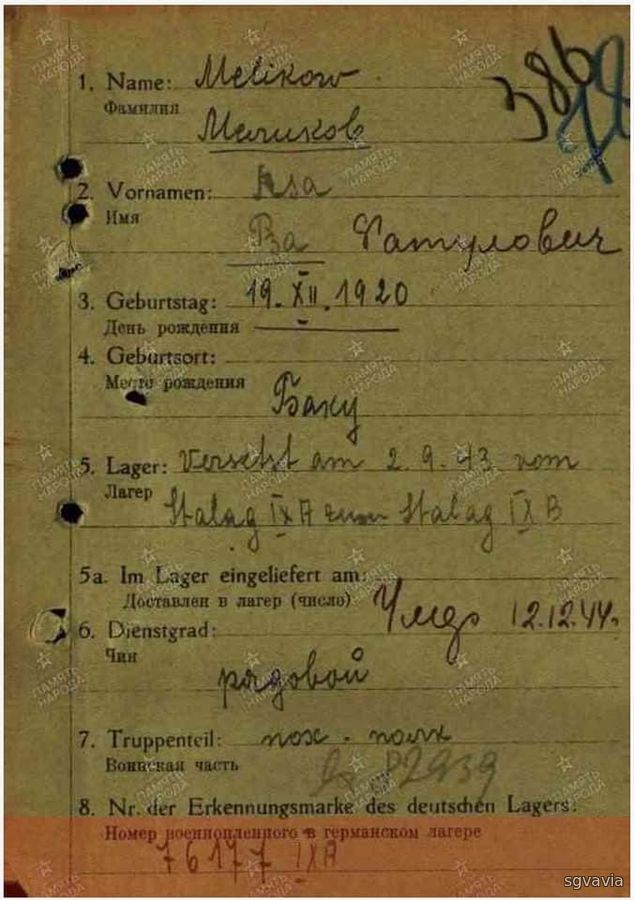 386
1. Name: Melikow
Фамилия
Меликов
2. Vornamen: Asa
Имя
За Фатулович
3. Geburtstag: 19.XII.1920
День рождения
4. Geburtsort:
Место рождения
Баку
5. Lager: Versetzt am 2.9.43 vom
Лагер
Stalag IX A zum Stalag IX B
5a. Im Lager eingeliefert am:
Доставлен в лагер (число)
12.12.44.
6. Dienstgrad:
Чин
рядовой
7. Truppenteil:
Воинская часть
полк
2939
8. Nr. der Erkennungsmarke des deutschen Lagers:
Номер военнопленного в германском лагере
76177 IXA
ПАМЯТЬ НАРОДА
sgvavia